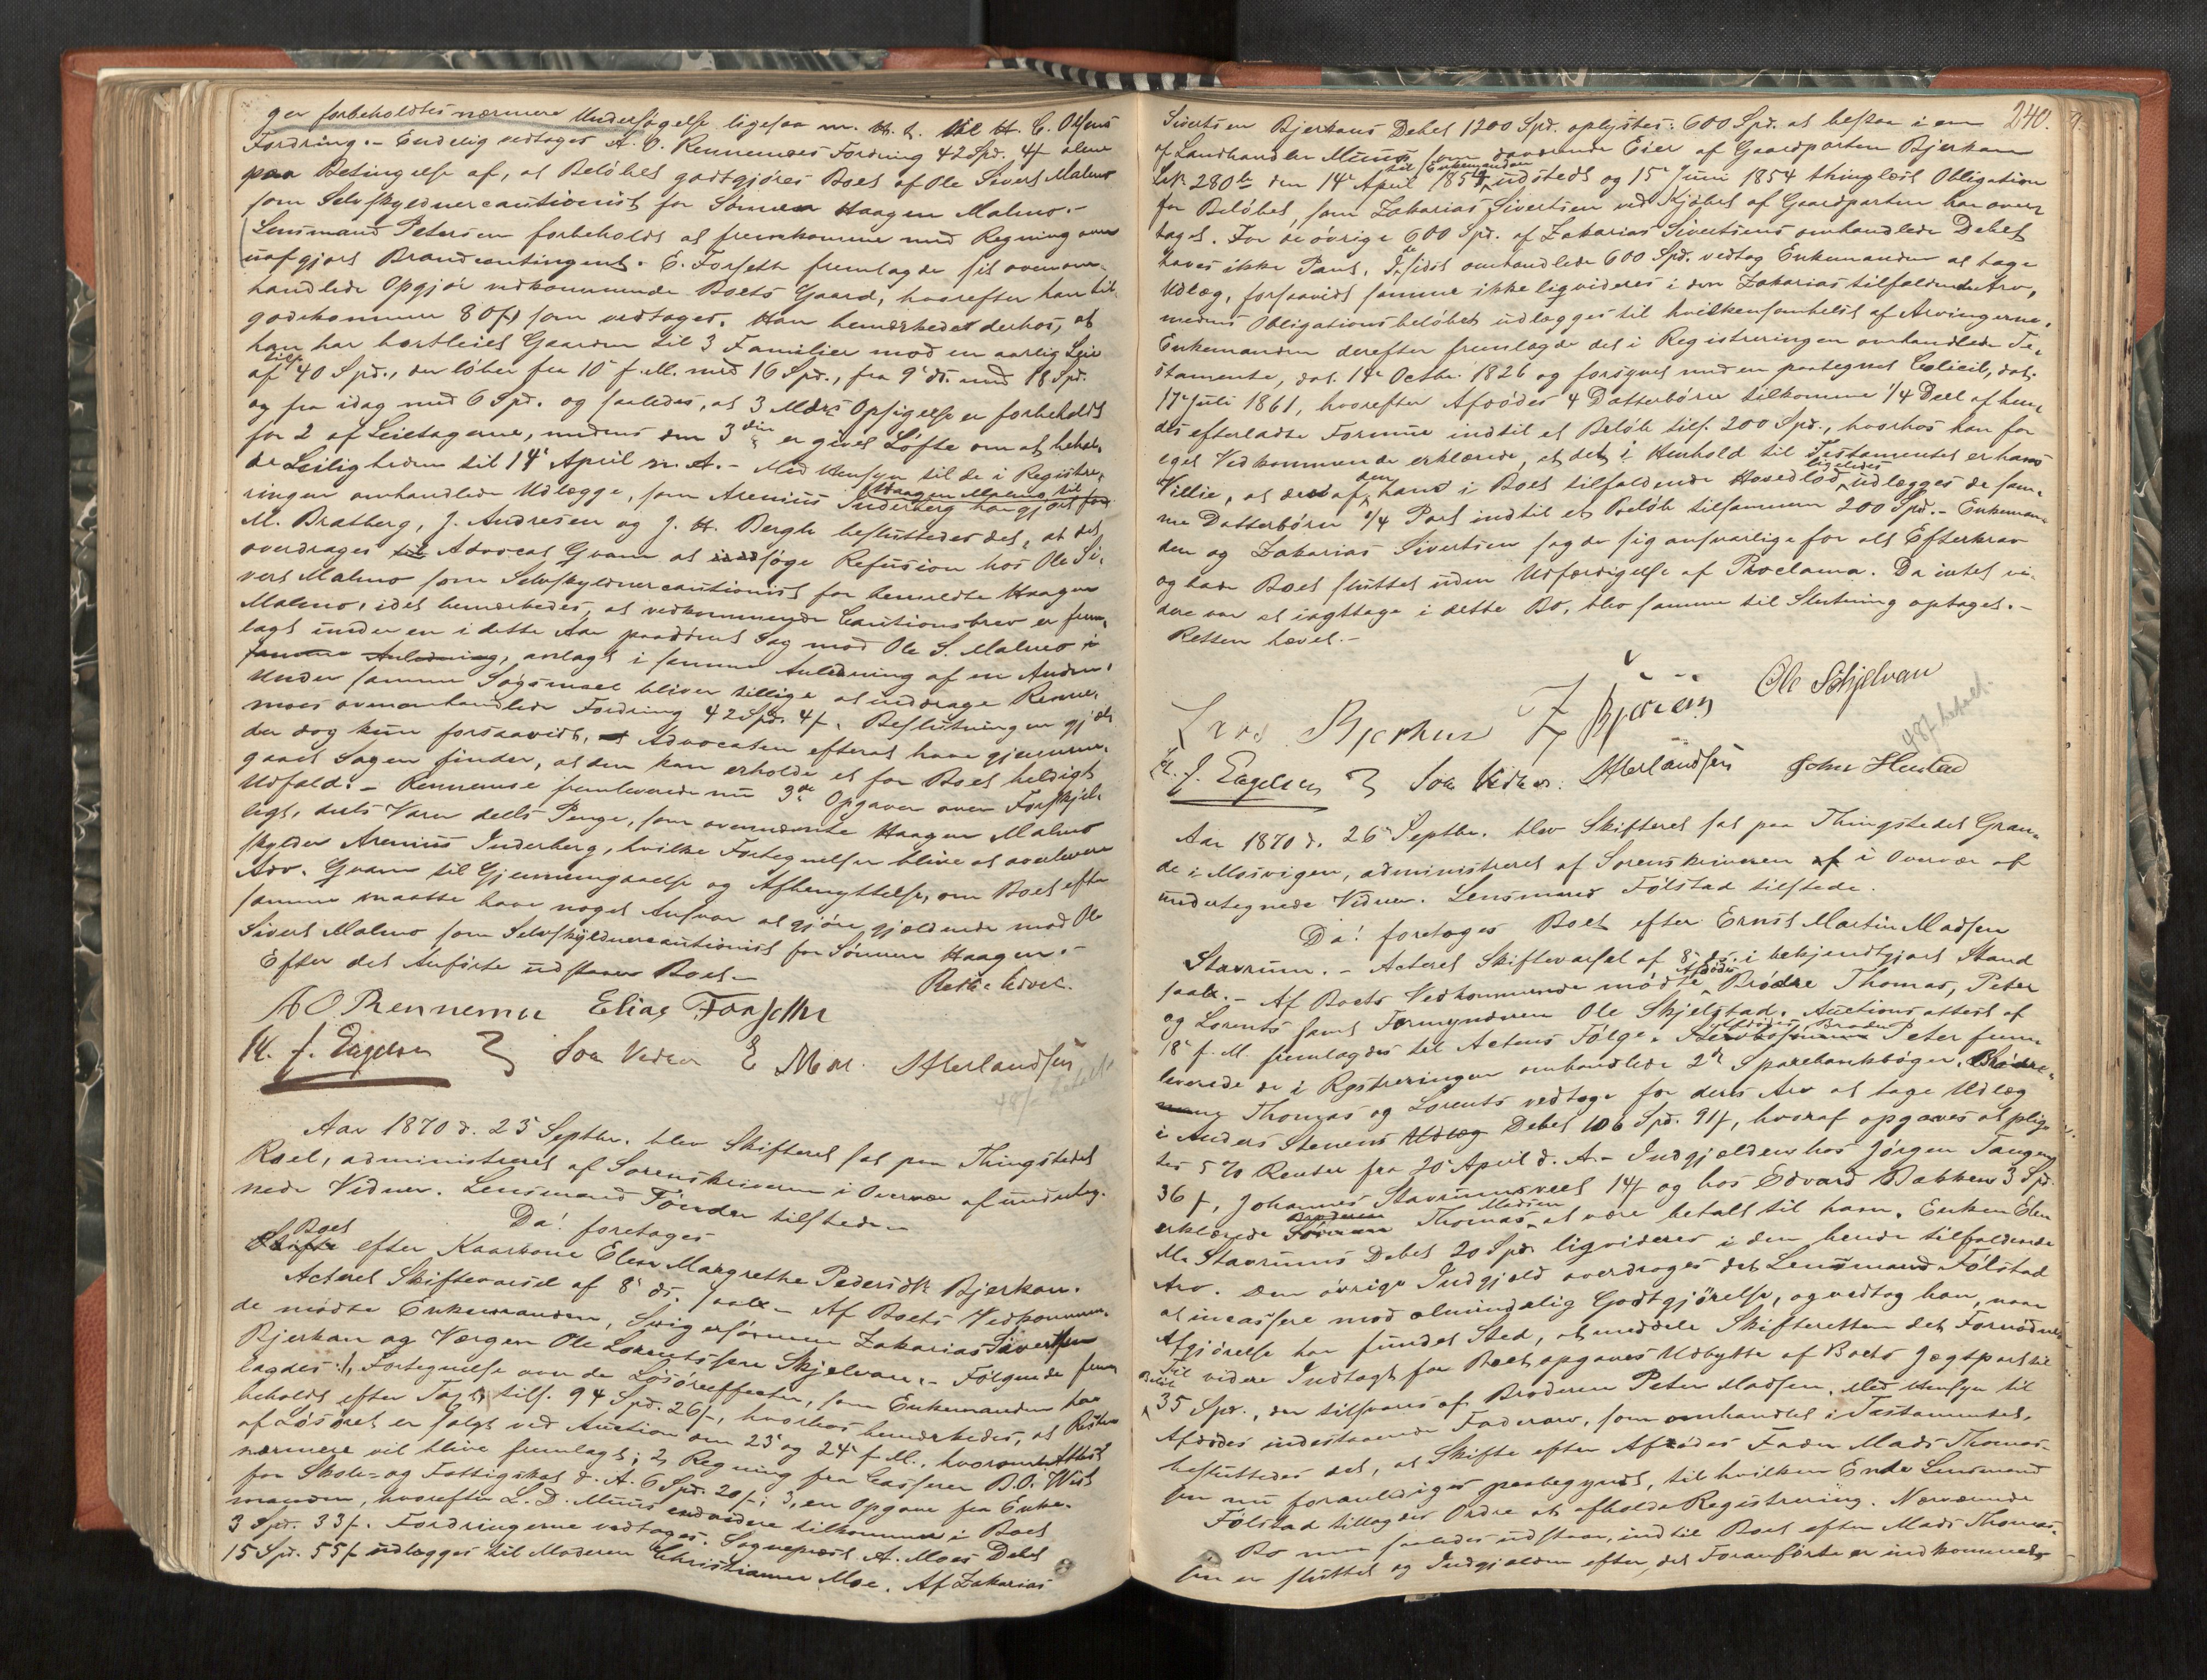 ger forbeholdtes nærmere Undersøgelse ligesaa m. H. t. H. C. Olsens
Fordring. – Endelig vedtages A. O. Rennemoes Fordring 42 Spd. 4 ß alene
paa Betingelse af, at Beløbet godtgjøres Boet af Ole Sivert Malmo
som Selvskyldnercautionist for Sønnen Haagen Malmo. –
Lensmand Petersen forbeholdt at fremkomme med Regning over
uafgjort Brandcontingent. E. Forseth fremlagde sit ovenom-
handlede Opgjør vedkommende Boets Gaard, hvorefter han til-
godekommer 80 ß, som vedtages. Han bemærkedes derhos, at
han har bortleiet Gaarden til 3 Familier mod en aarlig Leie
af tils. 40 Spd., der løber fra 10de f. M. med 16 Spd., fra 9de ds. med 18 Spd.
og fra idag med 6 Spd. og saaledes, at 3 Mdrs Opsigelse er forbeholdt
for 2 af Leietagerne, medens den 3die er givet Løfte om at behol-
de Leiligheden til 14de April n. A. – Med Hensyn til de i Registre-
ringen omhandlede Udlægge, som Arenius Inderberg har gjort for
Haagen Malmo til
M. Bratberg, J. Andresen og J. H. Bergh besluttedes det, at det
overdrages til Advocat Qvam at søge Refusion hos Ole Si-
vert Malmo som Selvskyldnercautionist for bemeldte Haagen
Malmo, idet bemærkedes, at vedkommende Cautionsbrev er frem-
lagt under en i dette Aar paadømt Sag mod Ole S. Malmo i
samme Anledning, anlagt i samme Anledning af en Anden.
Under samme Søgsmaal bliver tillige at inddrage Renne-
moes ovenomhandlede Fordring 42 Spd. 4 ß. Beslutningen gjæl-
der dog kun forsaavidt, Advocaten efterat have gjennem-
gaaet Sagen finder, at den kan erholde et for Boet heldigt
Udfald. – Rennemoe fremleverede nu 3de Opgaver over Forskjel-
ligt, dels Varer dels Penge, som ovennævnte Haagen Malmo
skylder Arenius Inderberg, hvilke Fortegnelser blive at overlevere
Adv. Qvam til Gjennemgaaelse og Afbenyttelse, om Boet efter
samme maatte have noget Ansvar at gjøre gjældende mod Ole
Sivert Malmo som Selvskyldnercautionist for Sønnen Haagen. –
Efter det Anførte udstaaer Boet. –
Retten hævet.
A O Rennemoe Elias Forsethe
J. Engelsen Som Vidner E Moe. Sterlandsen
48 ß betalt
Aar 1870 d. 25 Septbr. blev Skifteret sat paa Thingstedet
Roel, administreret af Sorenskriveren i Overvær af underteg-
nede Vidner. Lensmand Tönder tilstede. –
Da! foretoges
Boet
Skifte efter Kaarkone Elen Margrethe Pedersdtr. Bjerkan.
Acteret Skiftevarsel af 8de ds. saal. – Af Boets Vedkommen-
de mødte Enkemanden, Svigersønnen Zakarias Sivertsen
Bjerkan og Værgen Ole Lorentssen Skjelvan. – Følgende frem-
lagdes: 1, Fortegnelse over de Løsøreeffecter, som Enkemanden har
beholdt efter Taxt, tils. 94 Spd. 26 ß, hvorhos bemærkedes, at Resten
af Løsøret er solgt ved Auction den 23de og 24de f. M., hvorom Attest
nærmere vil blive fremlagt; 2, Regning fra Casserer B. O. Wist
for Skole- og Fattigskat d. A. 6 Spd. 20 ß; 3, en Opgave fra Enke-
manden, hvorefter L. D. Müus endvidere tilkommer i Boet
3 Spd. 33 ß. Fordringerne vedtages. Sognepræst A. Moes Debet
15 Spd. 55 ß udlægges til Moderen Christianna Moe. Af Zakarias
240.
Sivertsen Bjerkans Debet 1200 Spd. oplystes: 600 Spd. at bestaa i en
af Landhandler Müus som daværende Eier af Gaardparten Bjerkan
til Enkemanden
L.nr. 280b den 14de April 1854 udstedt og 15de Juni 1854 thinglæst Obligation
for Beløbet, som Zakarias Sivertsen ved Kjøbet af Gaardparten har over-
taget. For de øvrige 600 Spd. af Zakarias Sivertsens omhandlede Debet
haves ikke Pant. I de sidst omhandlede 600 Spd. vedtog Enkemanden at tage
Udlæg, forsaavidt samme ikke liqvideres i den Zakarias tilfaldende Arv,
medens Obligationsbeløbet udlægges til hvilkensomhelst af Arvingerne.
Enkemanden derefter fremlagde det i Registreringen omhandlede Te-
stamente, dat. 14de Octbr. 1826 og forsynet med en paategnet Codicil, dat.
17de Juli 1861, hvorefter Afdødes 4 Datterbørn tilkomme 1/4 Deel af hen-
des efterladte Formue indtil et Beløb tils. 200 Spd., hvorhos han for
eget Vedkommende erklærede, at det i Henhold til Testamentet er hans
Villie, at der af den hans i Boet tilfaldende Hovedlod ligeledes udlægges de sam-
me Datterbørn 1/4 Part indtil et Beløb tilsammen 200 Spd. – Enkeman-
den og Zakarias Sivertsen sagde sig ansvarlige for alt Efterkrav
og bade Boet sluttet uden Udfærdigelse af Proclama. Da intet vi-
dere var at iagttage i dette Bo, blev samme til Slutning optaget. –
Retten hævet. –
Lars Bjerkan Z Bjerkan Ole Skjelvan
48 ß betalt.
J. Engelsen Som Vidner: Sterlandsen John Hustad
Aar 1870 d. 26de Septbr. blev Skifteret sat paa Thingstedet Gran-
de i Mosvigen, administreret af Sorenskriveren i Overvær af
undertegnede Vidner. Lensmand Følstad tilstede.
Da! foretages Boet efter Ernst Martin Madsen
Stavrum. – Acteret Skiftevarsel af 8de ds. i bekjendtgjort Stand
saal. – Af Boets Vedkommende mødte Afdødes Brødre Thomas, Peter
og Lorents samt Formynderen Ole Skjelstad. Auctionsattest af
18de f. M. fremlagdes til Actens Følge. Afdødes Broder Peter frem-
leverede de i Registreringen omhandlede 2de Sparebankbøger. Brødre-
ne Thomas og Lorents vedtoge for deres Arv at tage Udlæg
i Anders Stenens Udlæg Debet 106 Spd. 91 ß, hvoraf opgaves at pligt-
tes 5 % Renter fra 20de April d. A. – Indgjælden hos Jørgen Tangen
36 ß, Johannes Stavrumsveet 14 ß og hos Edvard Bakken 3 Spd.
erklærede Broderen Thomas Madsen at være betalt til ham. Enken Elen
Stavrums Debet 20 Spd. liqvideres i den hende tilfaldende
Arv. Den øvrige Indgjæld overdroges det Lensmand Følstad
at incassere mod almindelig Godtgjørelse, og vedtog han, naar
Afgjørelse har fundet Sted, at meddele Skifteretten det Fornødne.
Til videre Indtægt for Boet opgaves Udbytte af Boets Jægtpart til
Beløb
35 Spd., der tilsvares af Broderen Peter Madsen. Med Hensyn til
Afdødes indestaaende Faderarv, som omhandlet i Testamentet,
besluttedes det, at Skifte efter Afdødes Fader Mads Thomas-
sen nu foranlediges paabegyndt, til hvilken Ende Lensmand
Følstad tillagdes Ordre at afholde Registrering. Nærværende
Bo maa saaledes udstaae, indtil Boet efter Mads Thomas-
sen er sluttet og Indgjælden efter det Foranførte er indkommet. –